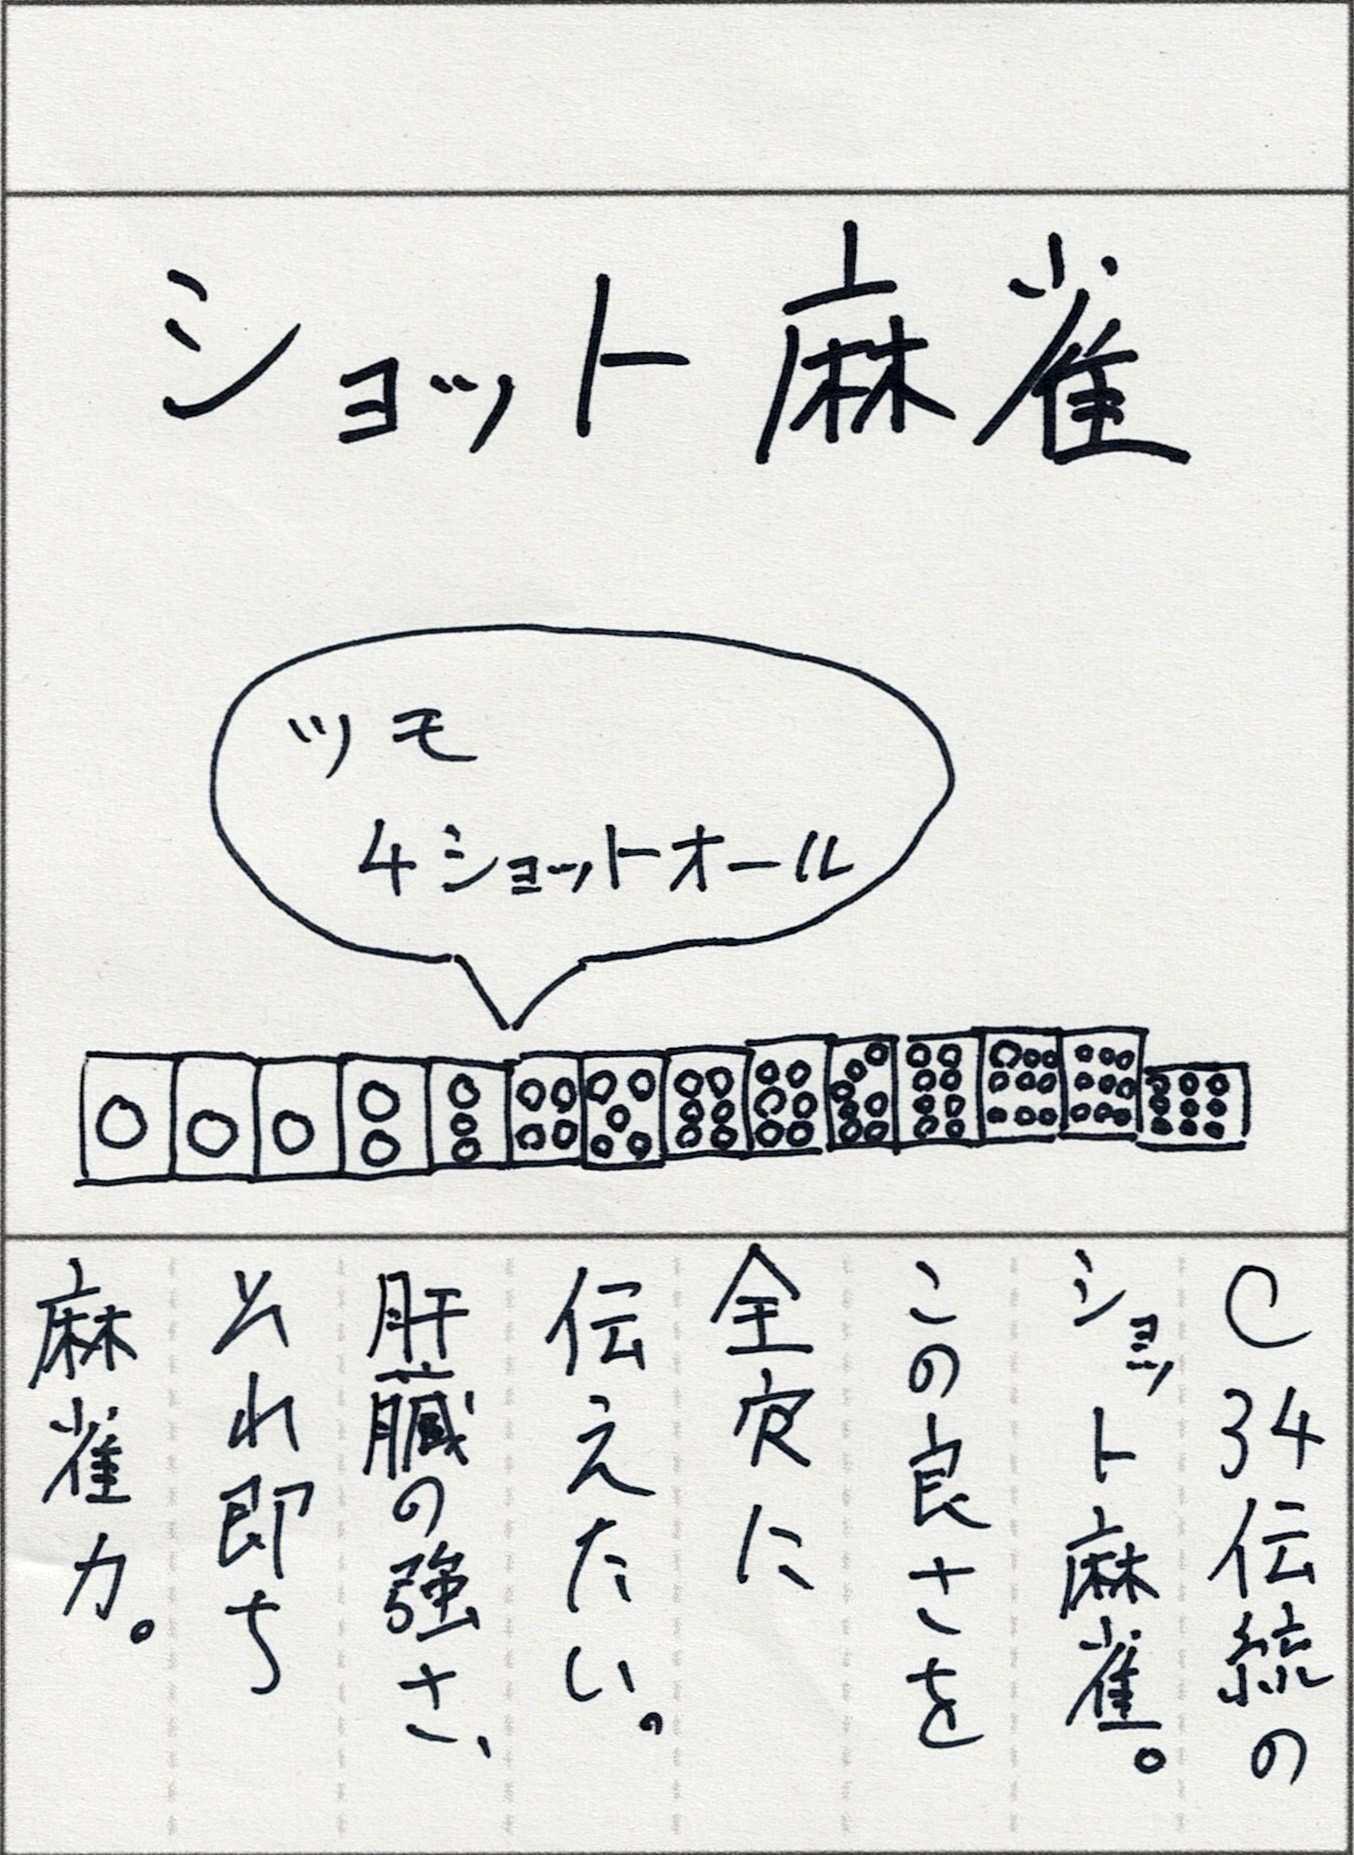 ショット麻雀
ツモ
4ショットオール
C34伝統の
ショット麻雀。
この良さを
全穴に
伝えたい。
肝臓の強さ、
それ即ち
麻雀力。